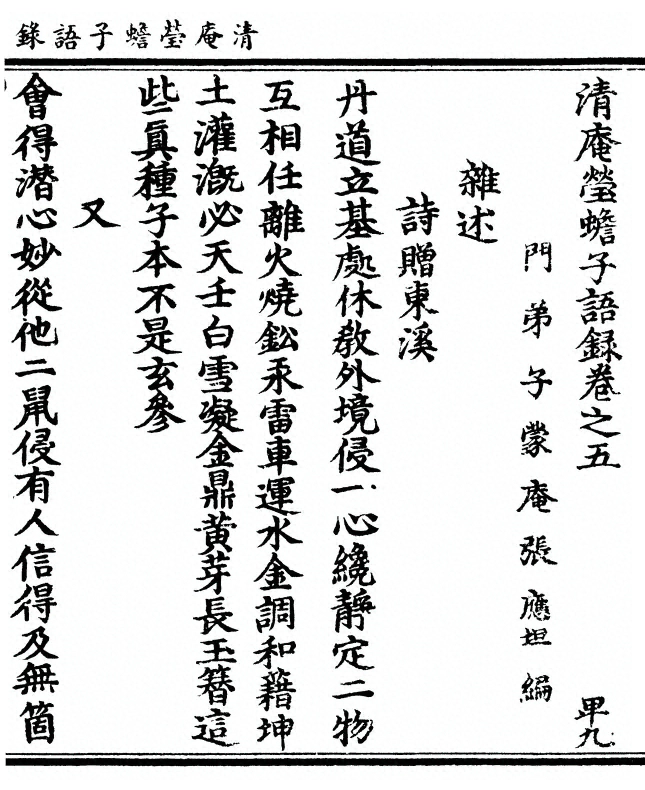 清庵瑩蟾子語錄
清庵瑩蟾子語錄卷之五
甲九
門弟子蒙庵張應坦編
雜述
詩贈東溪
丹道立基處休教外境侵一心纔靜定二物
互相任離火燒鈆汞雷車運水金調和藉坤
土灌漑必天壬白雪凝金鼎黃芽長玉簪這
些真種子本不是玄參
又
會得潛心妙從他二鼠侵有人信得及無箇